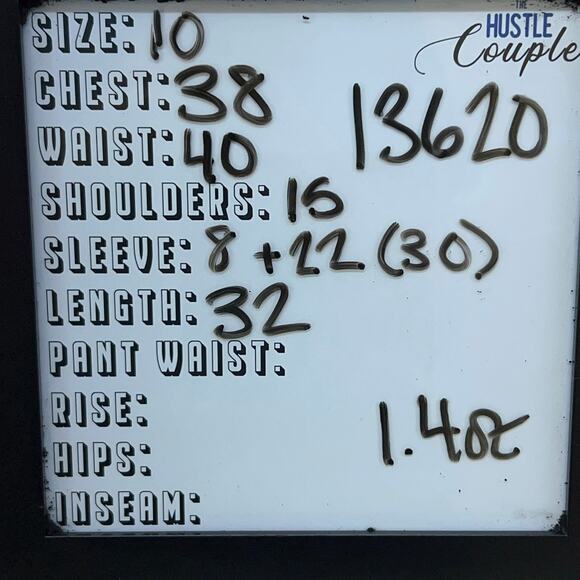 THE
HUSTLE
Couple
SIZE: 10
CHEST: 38
13620
WAIST: 40
SHOULDERS: 15
SLEEVE: 8 + 22 (30)
LENGTH: 32
PANT WAIST:
RISE:
1.4oz
HIPS:
INSEAM: